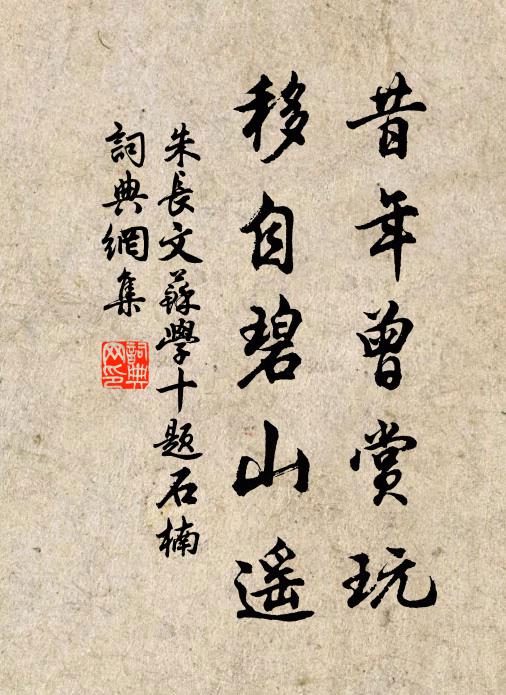 昔年曾賞玩
移自碧山遥
朱長文蘇學十題石楠
詞典網集
詞典
网印